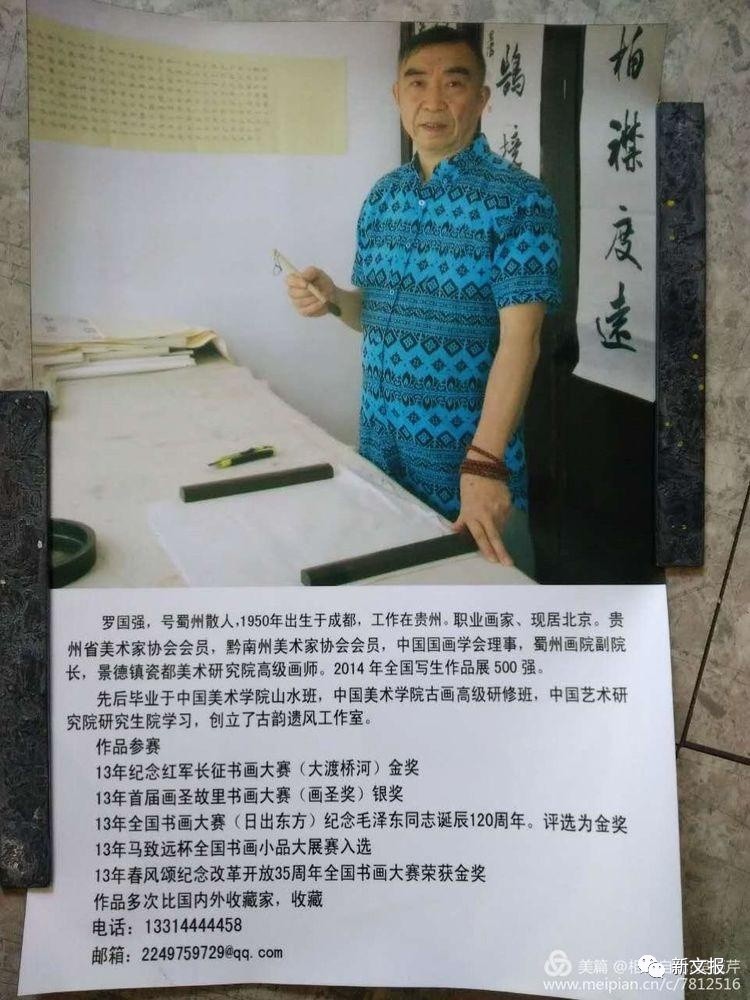 鹄境
柏襟度远
罗国强，号蜀州散人,1950年出生于成都，工作在贵州。职业画家、现居北京。贵
州省美术家协会会员，黔南州美术家协会会员，中国国画学会理事，蜀州画院副院
长，景德镇瓷都美术研究院高级画师。2014年全国写生作品展500强。
先后毕业于中国美术学院山水班，中国美术学院古画高级研修班，中国艺术研
究院研究生院学习，创立了古韵遗风工作室。
作品参赛
13年纪念红军长征书画大赛（大渡桥河）金奖
13年首届画圣故里书画大赛（画圣奖）银奖
13年全国书画大赛（日出东方）纪念毛泽东同志诞辰120周年。评选为金奖
13年马致远杯全国书画小品大展赛入选
13年春风颂纪念改革开放35周年全国书画大赛荣获金奖
作品多次比国内外收藏家，收藏
电话：13314444458
邮箱：2249759729@qq.com
美篇 @相 自 芹
新文报
www.meipian.cn/c/7812516